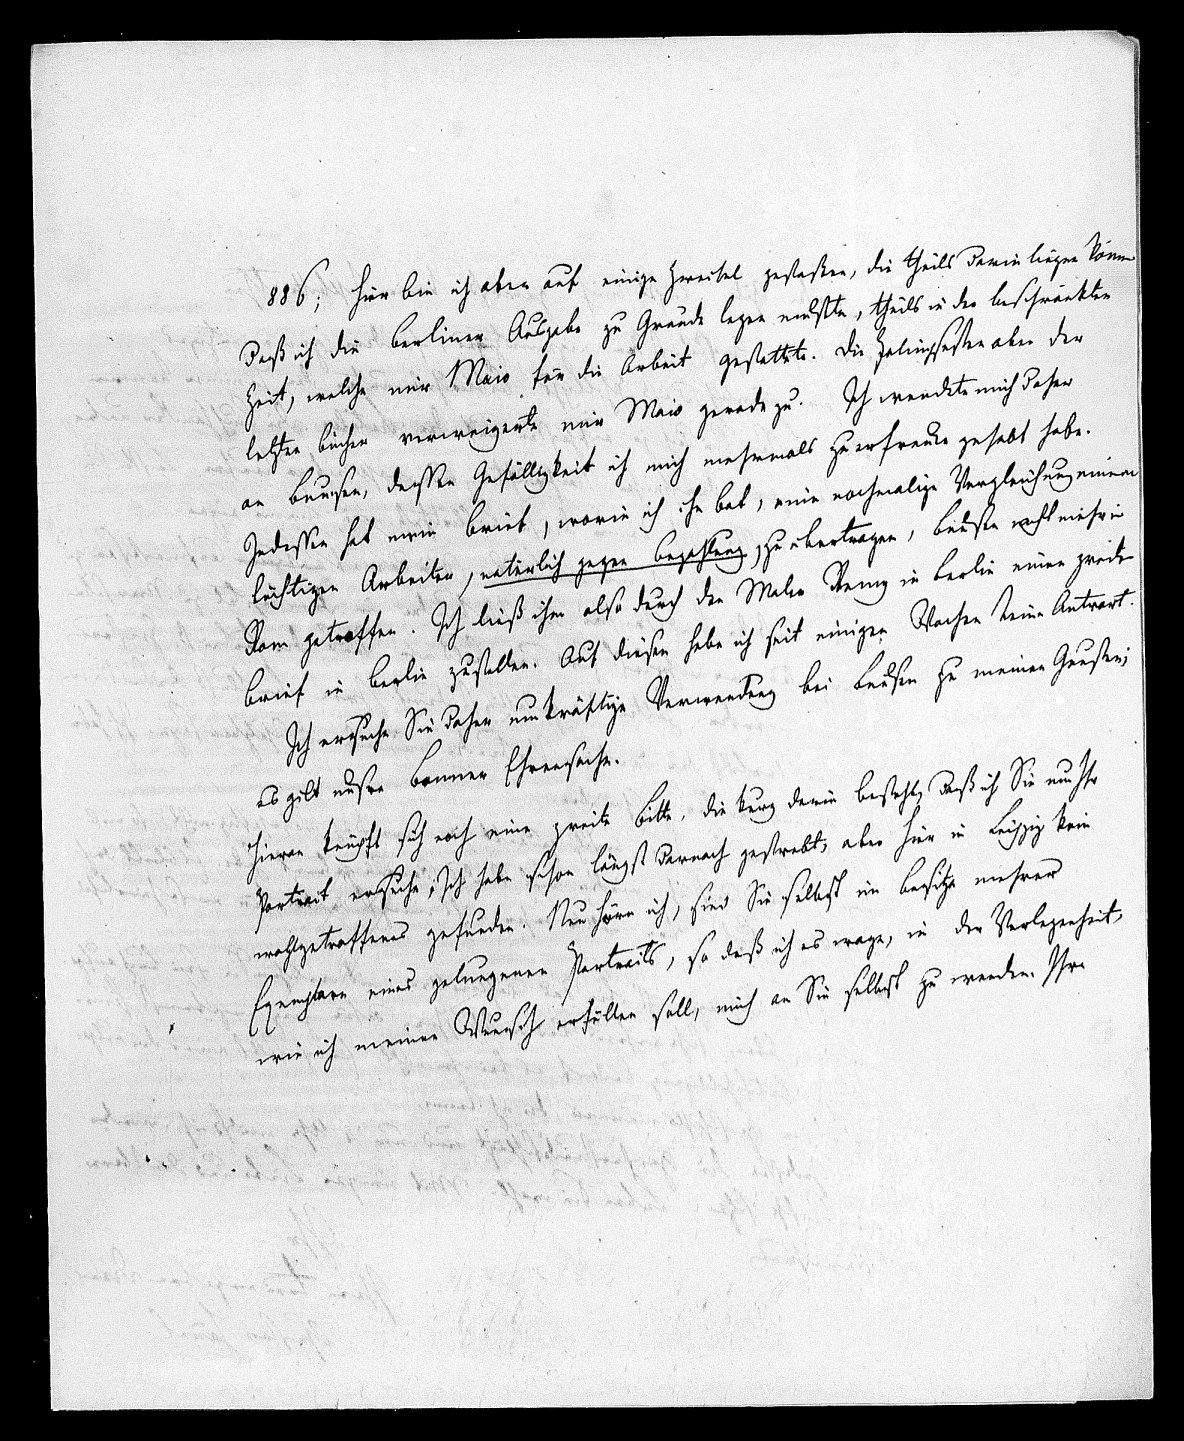 886; hier bin ich aber auf einige Zweifel gestoßen, die theils darin liegen können
daß ich die berliner Ausgabe zu Grunde legen mußte, theils in der beschränkten
Zeit, welche mir Maio für die Arbeit gestattete. Die Palimpsesten aber der
letzten bücher verweigerte mir Maio geradezu. Ich wendete mich daher
an bunsen, dessen Gefälligkeit ich mich mehrmals zu erfreuen gehabt habe.
Indessen hat mein brief, worin ich ihn bat, eine nochmalige Vergleichung einem
tüchtigen Arbeiter, natürlich gegen bezahlung, zu übertragen, bunsen nicht mehr in
Rom getroffen. Ich ließ ihm also durch den Maler Remy in berlin einen zweiten
brief in berlin zustellen. Auf diesen habe ich seit einigen Wochen keine Antwort.
Ich ersuche Sie daher um kräftige Verwendung bei bunsen zu meinen Gunsten;
es gilt unsre bonner Ehrensache.
Hieran knüpft sich noch eine zweite bitte, die kurz darin besteht, daß ich Sie um Ihr
Portrait ersuche. Ich habe schon längst darnach gestrebt, aber hier in Leipzig kein
wohlgetroffenes gefunden. Nun höre ich, sind Sie selbst im besitze mehrer
Exemplare eines gelungenen Portraits, so daß ich es wage, in der Verlegenheit,
wie ich meinen Wunsch erfüllen soll, mich an Sie selbst zu wenden. Ihre